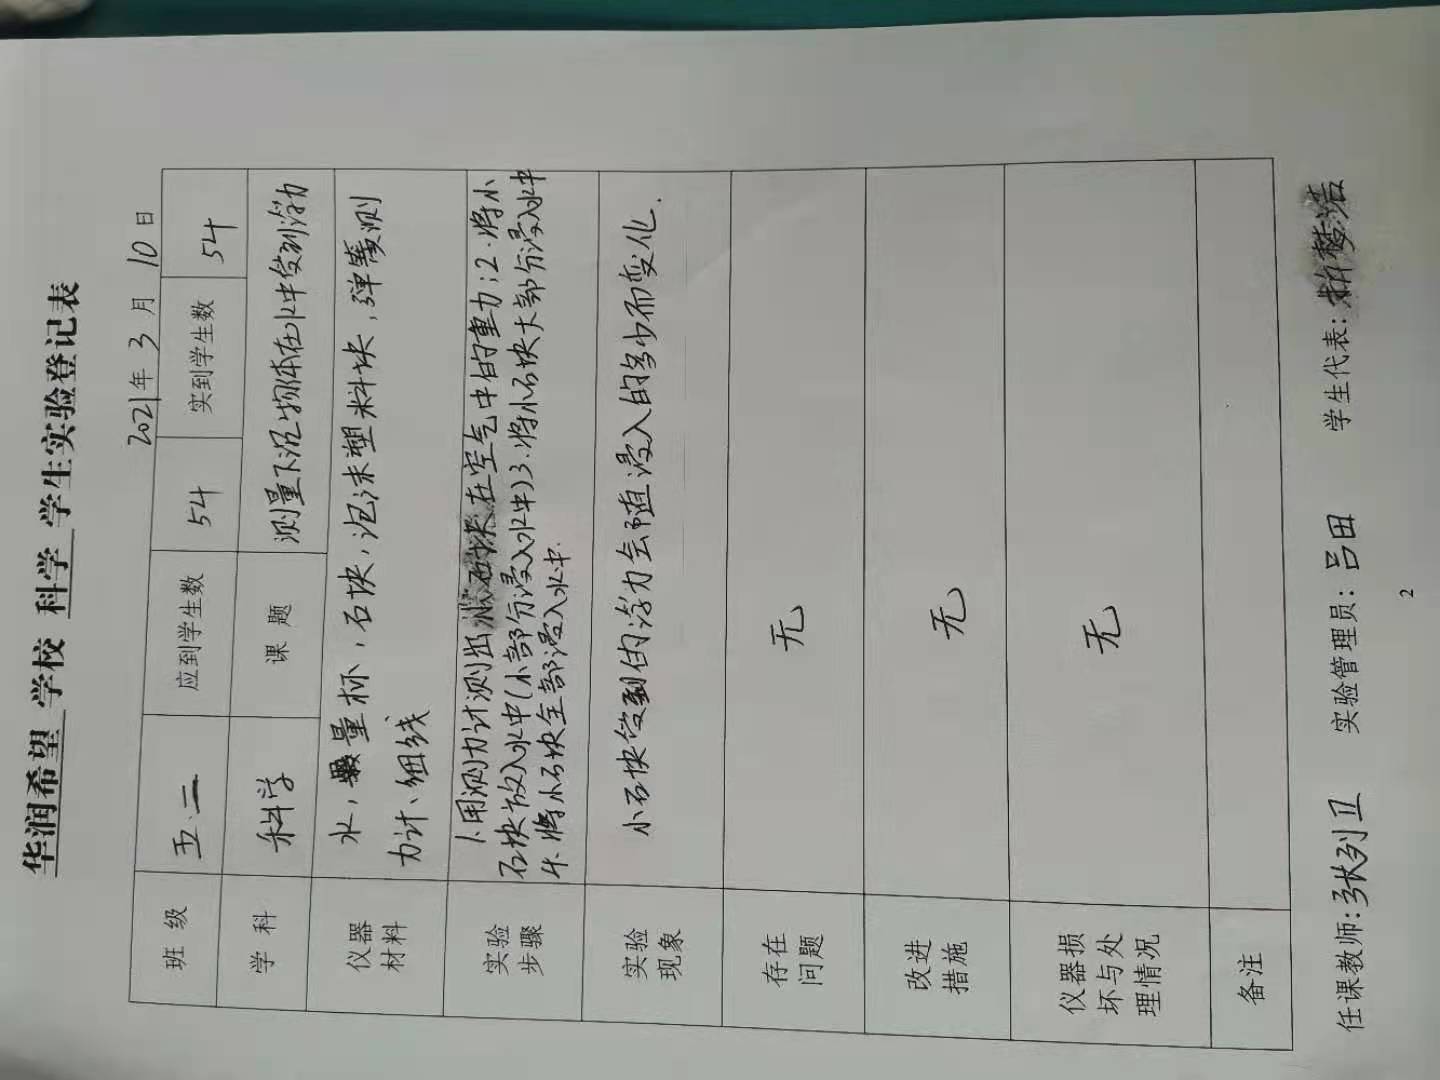 华润希望 学校 科学 学生实验登记表
2021年 3 月 10 日
班 级 五.二 应到学生数 54 实到学生数 54
学 科 科学 课 题 测量下沉物体在水中受到浮力
仪器
材料
水，量杯，石块，泡沫塑料块，弹簧测
力计、细线
实验
步骤
1.用测力计测出 石块在空气中的重力；2.将小
石块放入水中(小部分浸入水中)3.将小石块大部分浸入水中
4.将小石块全部浸入水中.
实验
现象
小石块受到的浮力会随浸入的多少而变化.
存在
问题
无
改进
措施
无
仪器损
坏与处
理情况
无
备注
任课教师: 张列卫 实验管理员: 吕田 学生代表:
2